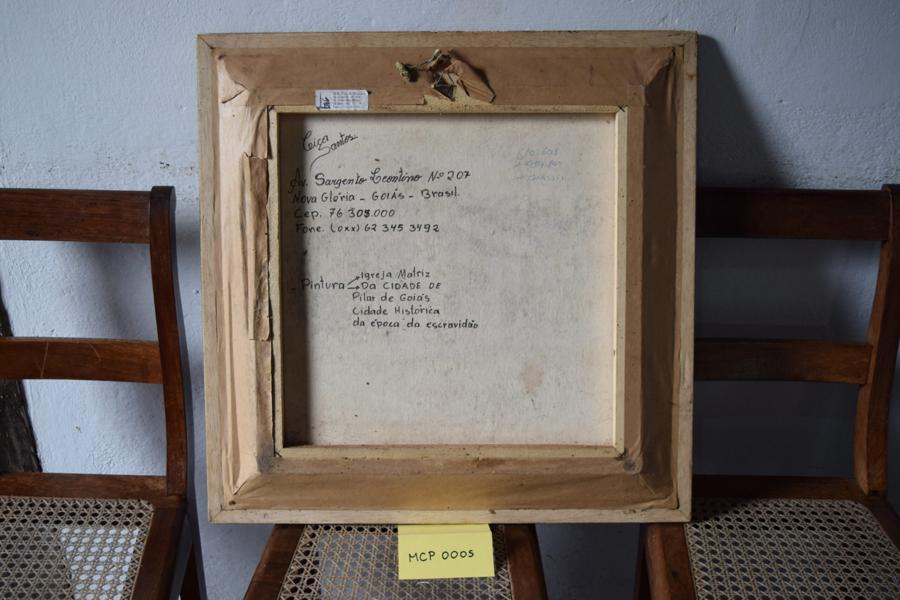 Ciça
Santos
Av. Sargento Leontino Nº 207
Nova Glória - GOIÁS - Brasil.
Cep. 76 305.000
Fone. (0xx) 62 345 3492
- Pintura → Igreja Matriz
DA CIDADE DE
Pilar de Goiás
Cidade Histórica
da época da escravidão
MCP 0005